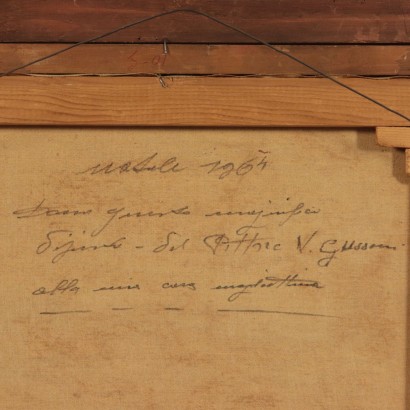 Natale 1964
Dono questo magnifico
dipinto - del Pittore V. Gussoni
alla mia cara mogliettina